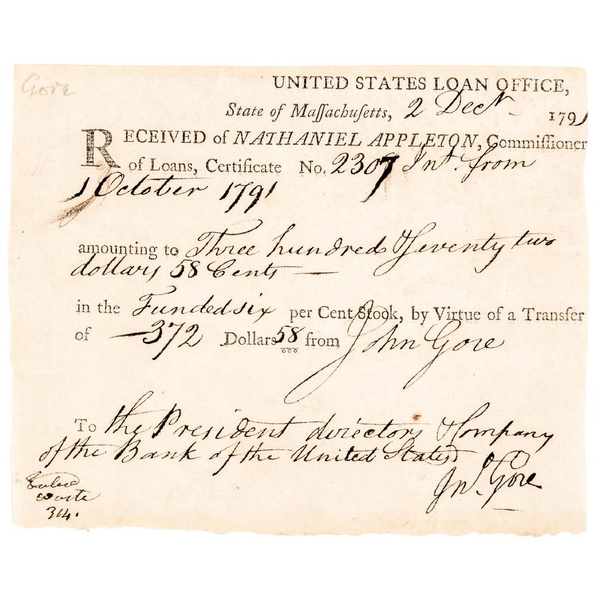 Gore
UNITED STATES LOAN OFFICE,
State of Maſſachuſetts, 2 Decr. 1791
RECEIVED of NATHANIEL APPLETON, Commissioner
of Loans, Certificate No. 2307 Int. from
1 October 1791
amounting to Three hundred & Seventy two
dollars 58 Cents —
in the Funded six per Cent Stock, by Virtue of a Transfer
of —372 Dollars 58 from John Gore
To the President directors & Company
of the Bank of the United States
Jno. Gore
waste
314.